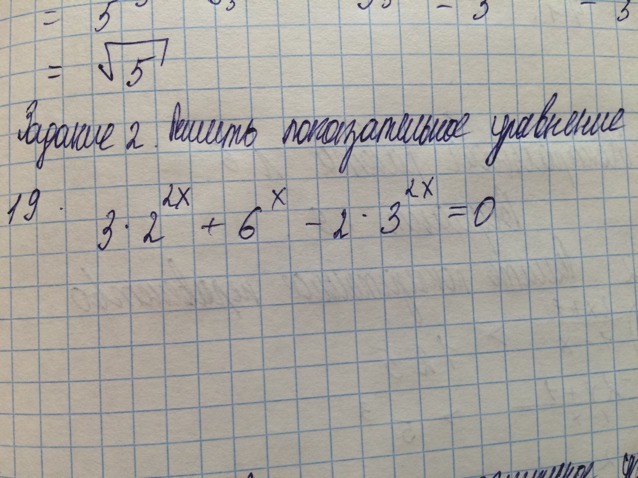 = √5
Задание 2. Решить показательное уравнение
19. 3·2^{2x} + 6^{x} - 2·3^{2x} = 0